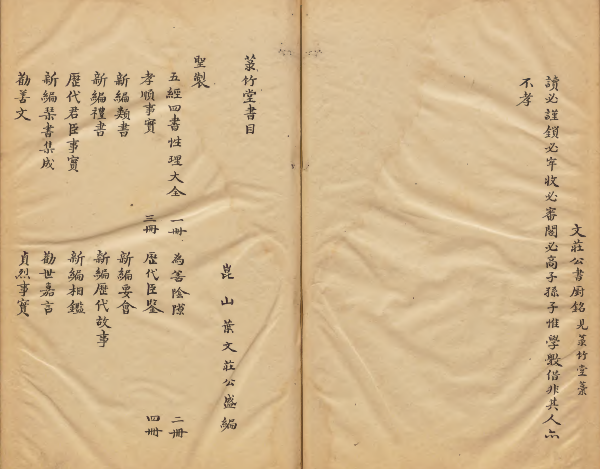 文莊公書厨銘 見菉竹堂藁
讀必謹鎖必牢收必審閣必高子孫子惟學斆借非其人亦
不孝
菉竹堂書目
崑山葉文莊公盛編
聖製
五經四書性理大全 一冊 為善陰隲 二冊
孝順事實 三冊 歷代臣鑒 四冊
新編類書 新編要會
新編禮書 新編歷代故事
歷代君臣事實 新編相鑑
新編琴書集成 勸世嘉言
勸善文 貞烈事實